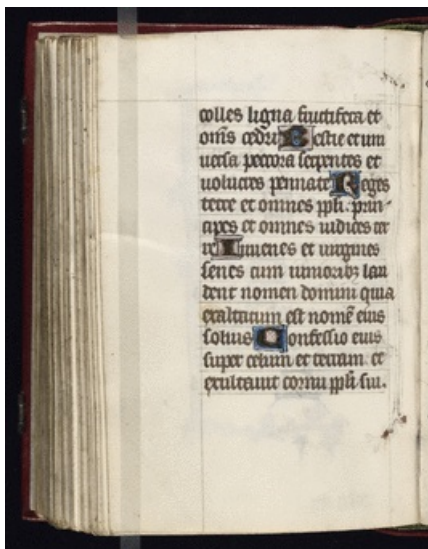 colles ligna fructifera et
om̄s cedri Bestie et uni
uersa pecora serpentes et
uolucres pennate Reges
terre et omnes ppli. prin-
cipes et omnes iudices ter
re Iuuenes et uirgines
senes cum iuniorib₃ lau
dent nomen domini quia
exaltatum est nomē eius
solius Confessio eius
super celum et terram et
exultauit cornu ppli sui.